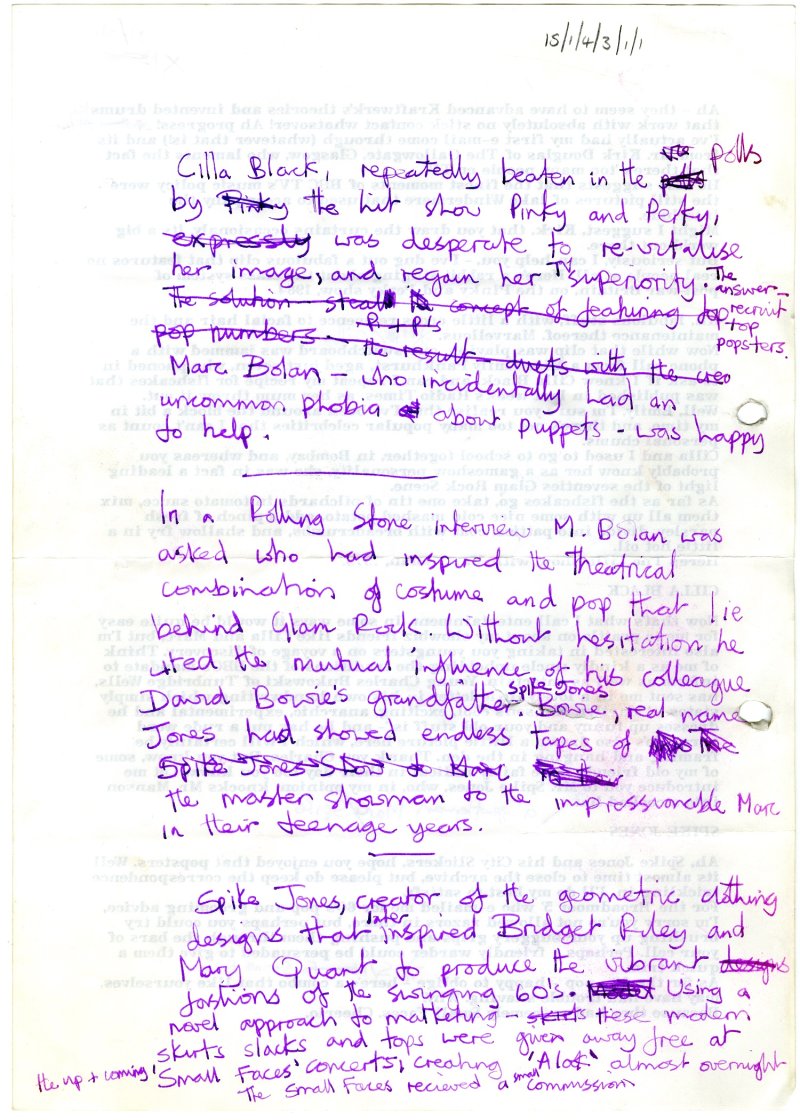 15/1/4/3/1/1
Cilla Black, repeatedly beaten in the polls
by Pinky the hit show Pinky and Perky,
expressly was desperate to re-vitalise
her image, and regain her TV superiority. The answer –
The solution concept of featuring top recruit
pop numbers. P. + P.'s top
the result – duets with the popsters.
Marc Bolan – who incidentally had an
uncommon phobia about puppets – was happy
to help.
In a Rolling Stone interview M. Bolan was
asked who had inspired the theatrical
combination of costume and pop that lie
behind Glam Rock. Without hesitation he
cited the mutual influence of his colleague
David Bowie's grandfather. Spike Jones
Bowie, real name
Jones had showed endless tapes of
Spike Jones Show to Marc
the master showman to the impressionable Marc
in their teenage years.
Spike Jones, creator of the geometric clothing
designs that later inspired Bridget Riley and
Mary Quant to produce the vibrant designs
fashions of the swinging 60's. Using a
novel approach to marketing – skirts these modern
skirts slacks and tops were given away free at
the up + coming 'Small Faces' concerts, creating almost overnight
The Small Faces recieved a small commission